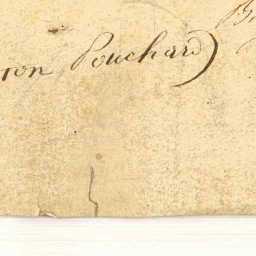 ton Pouchard)